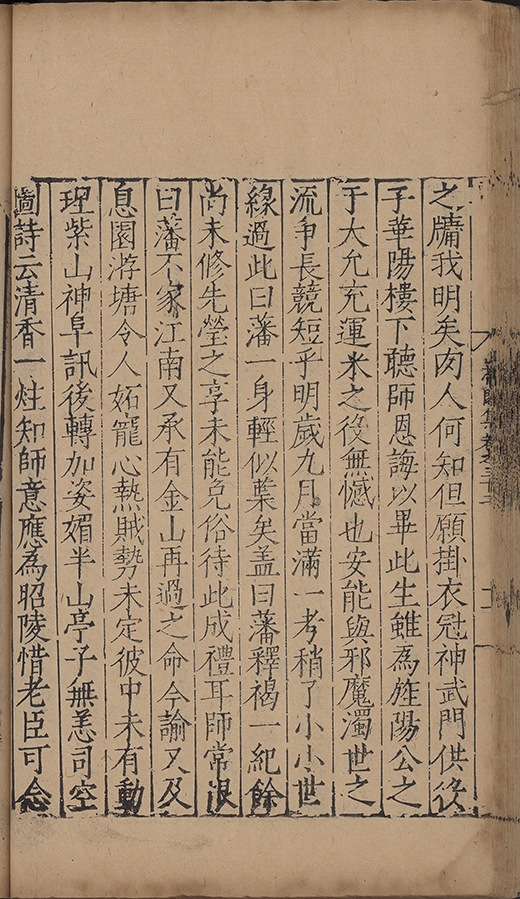 之牖我明矣肉人何知但願掛衣冠神武門供役
子華陽樓下聽師恩誨以畢此生雖為旌陽公之
于大允充運米之役無憾也安能與邪魔濁世之
流爭長競短乎明歲九月當滿一考稍了小小世
緣過此曰藩一身輕似葉矣盖曰藩釋褐一紀餘
尚未修先塋之享未能免俗待此成禮耳師常恨
曰藩不家江南又承有金山再過之命今諭又及
息園游塘令人妬寵心熱賊勢未定彼中未有動
理紫山神阜訊後轉加姿媚半山亭子無恙司空
圖詩云清香一炷知師意應為昭陵惜老臣可念